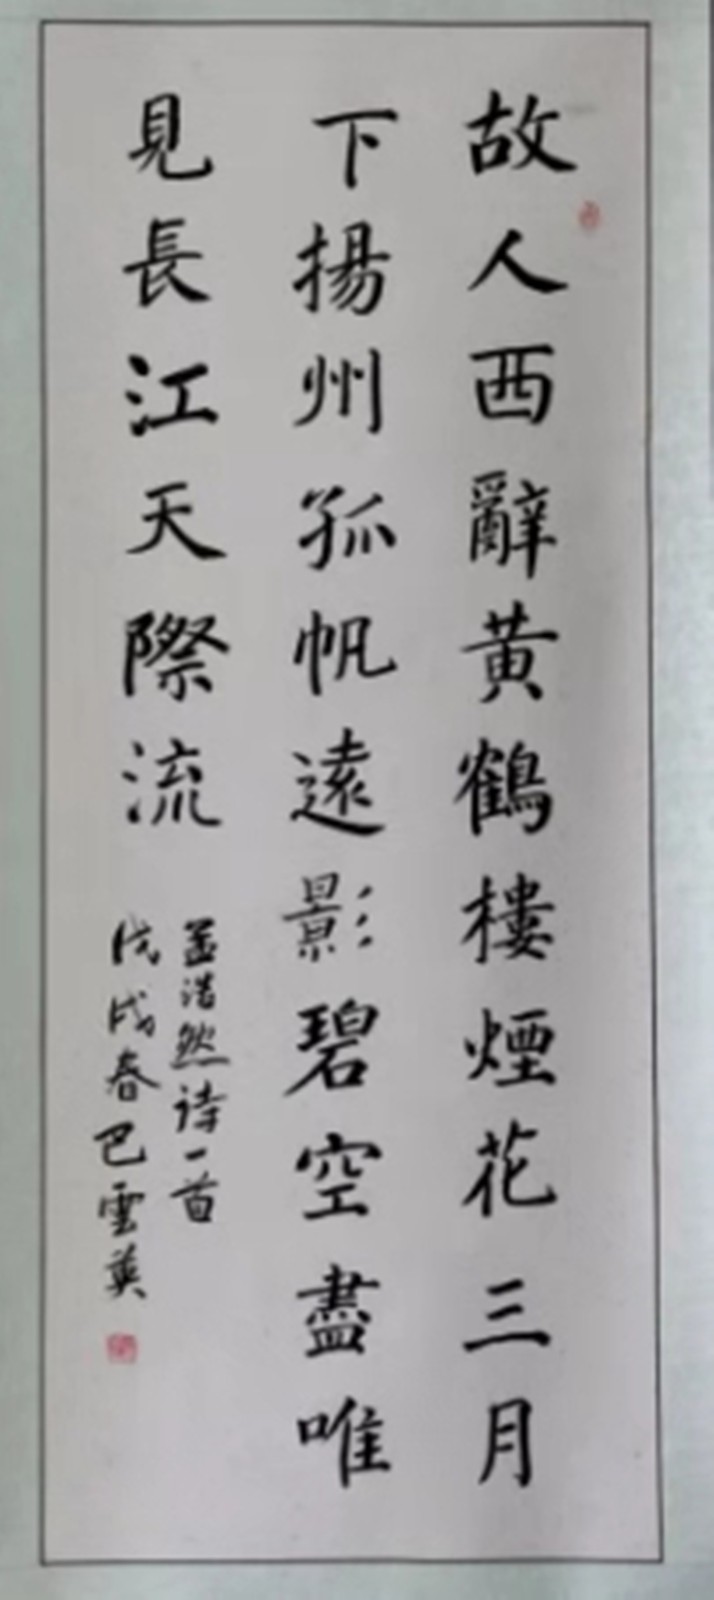 故人西辭黄鶴樓煙花三月
下揚州孤帆遠影碧空盡唯
見長江天際流
孟浩然诗一首
戊戌春巴雲英